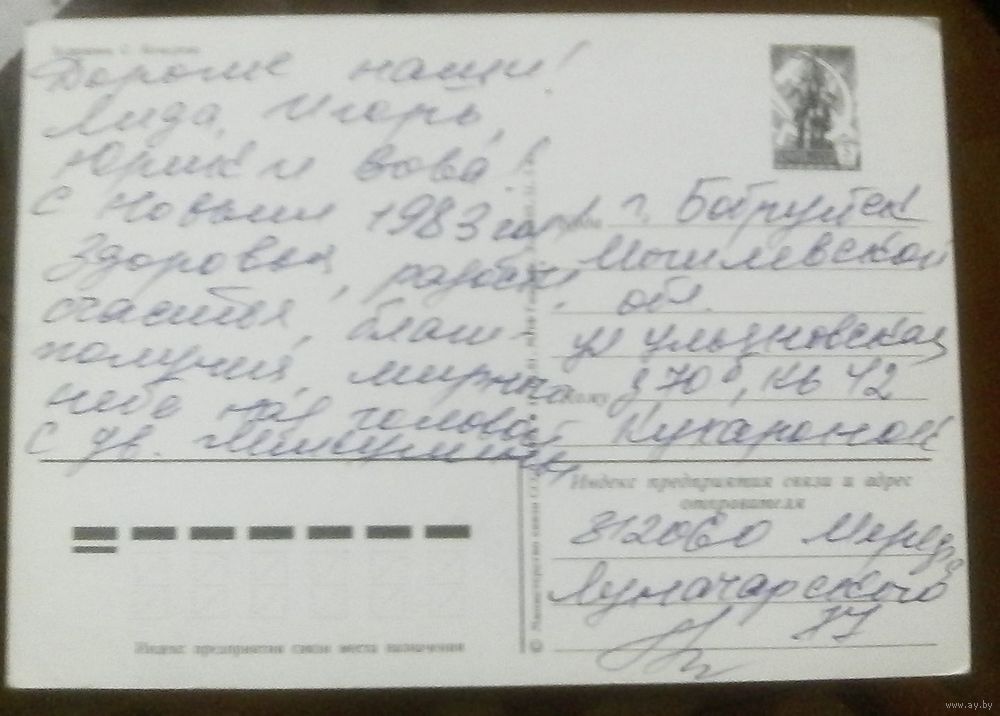 Дорогие наши!
Лида, Игорь,
Юрик и Вова!
С Новым 1983 годом
Здоровья, радости,
счастья, благо-
получия, мирного
неба над головой
С ув.
Куда г. Бобруйск
Могилевской
обл.
ул Ульяновская
д 70б, кв 42
Кому
Индекс предприятия связи и адрес
отправителя
312060
Луначарского
77
Индекс предприятия связи места назначения
www.ay.by